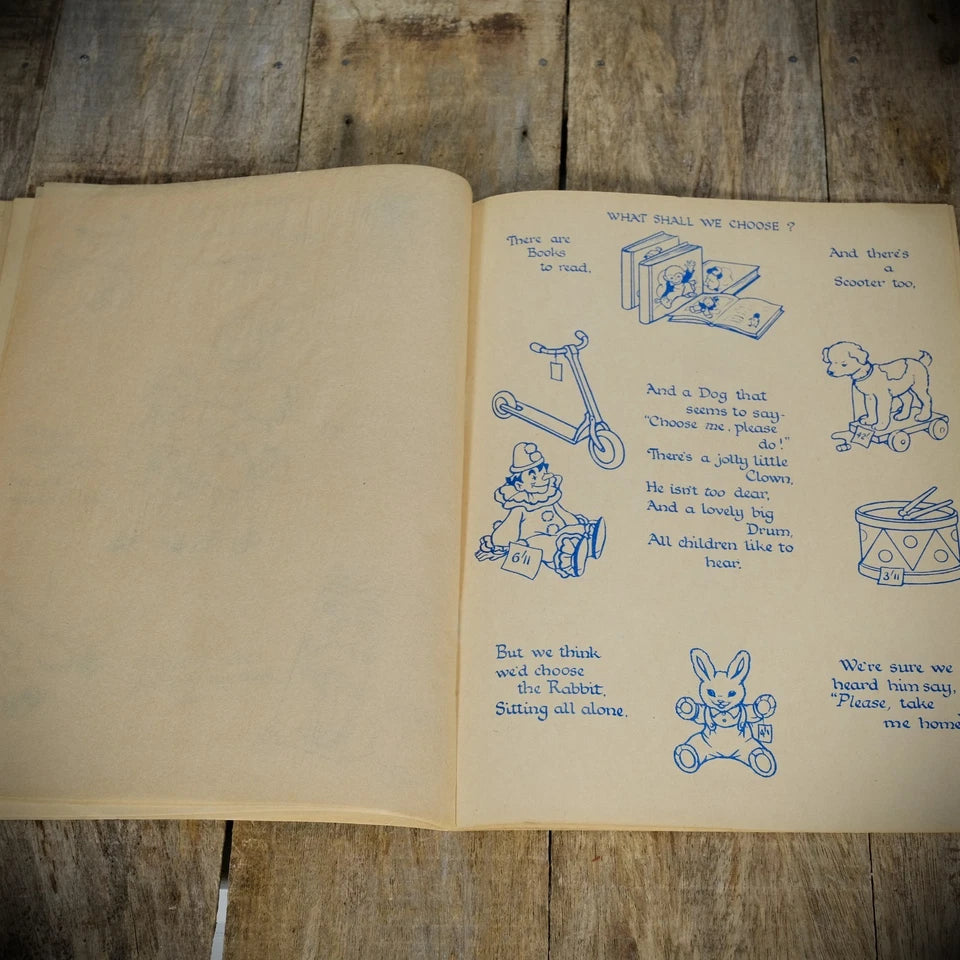 WHAT SHALL WE CHOOSE ?
There are
Books
to read,
And there's
a
Scooter too,
And a Dog that
seems to say-
"Choose me, please
do!"
There's a jolly little
Clown,
He isn't too dear,
And a lovely big
Drum,
All children like to
hear.
6/11
3/11
But we think
we'd choose
the Rabbit,
Sitting all alone.
We're sure we
heard him say,
"Please, take
me home